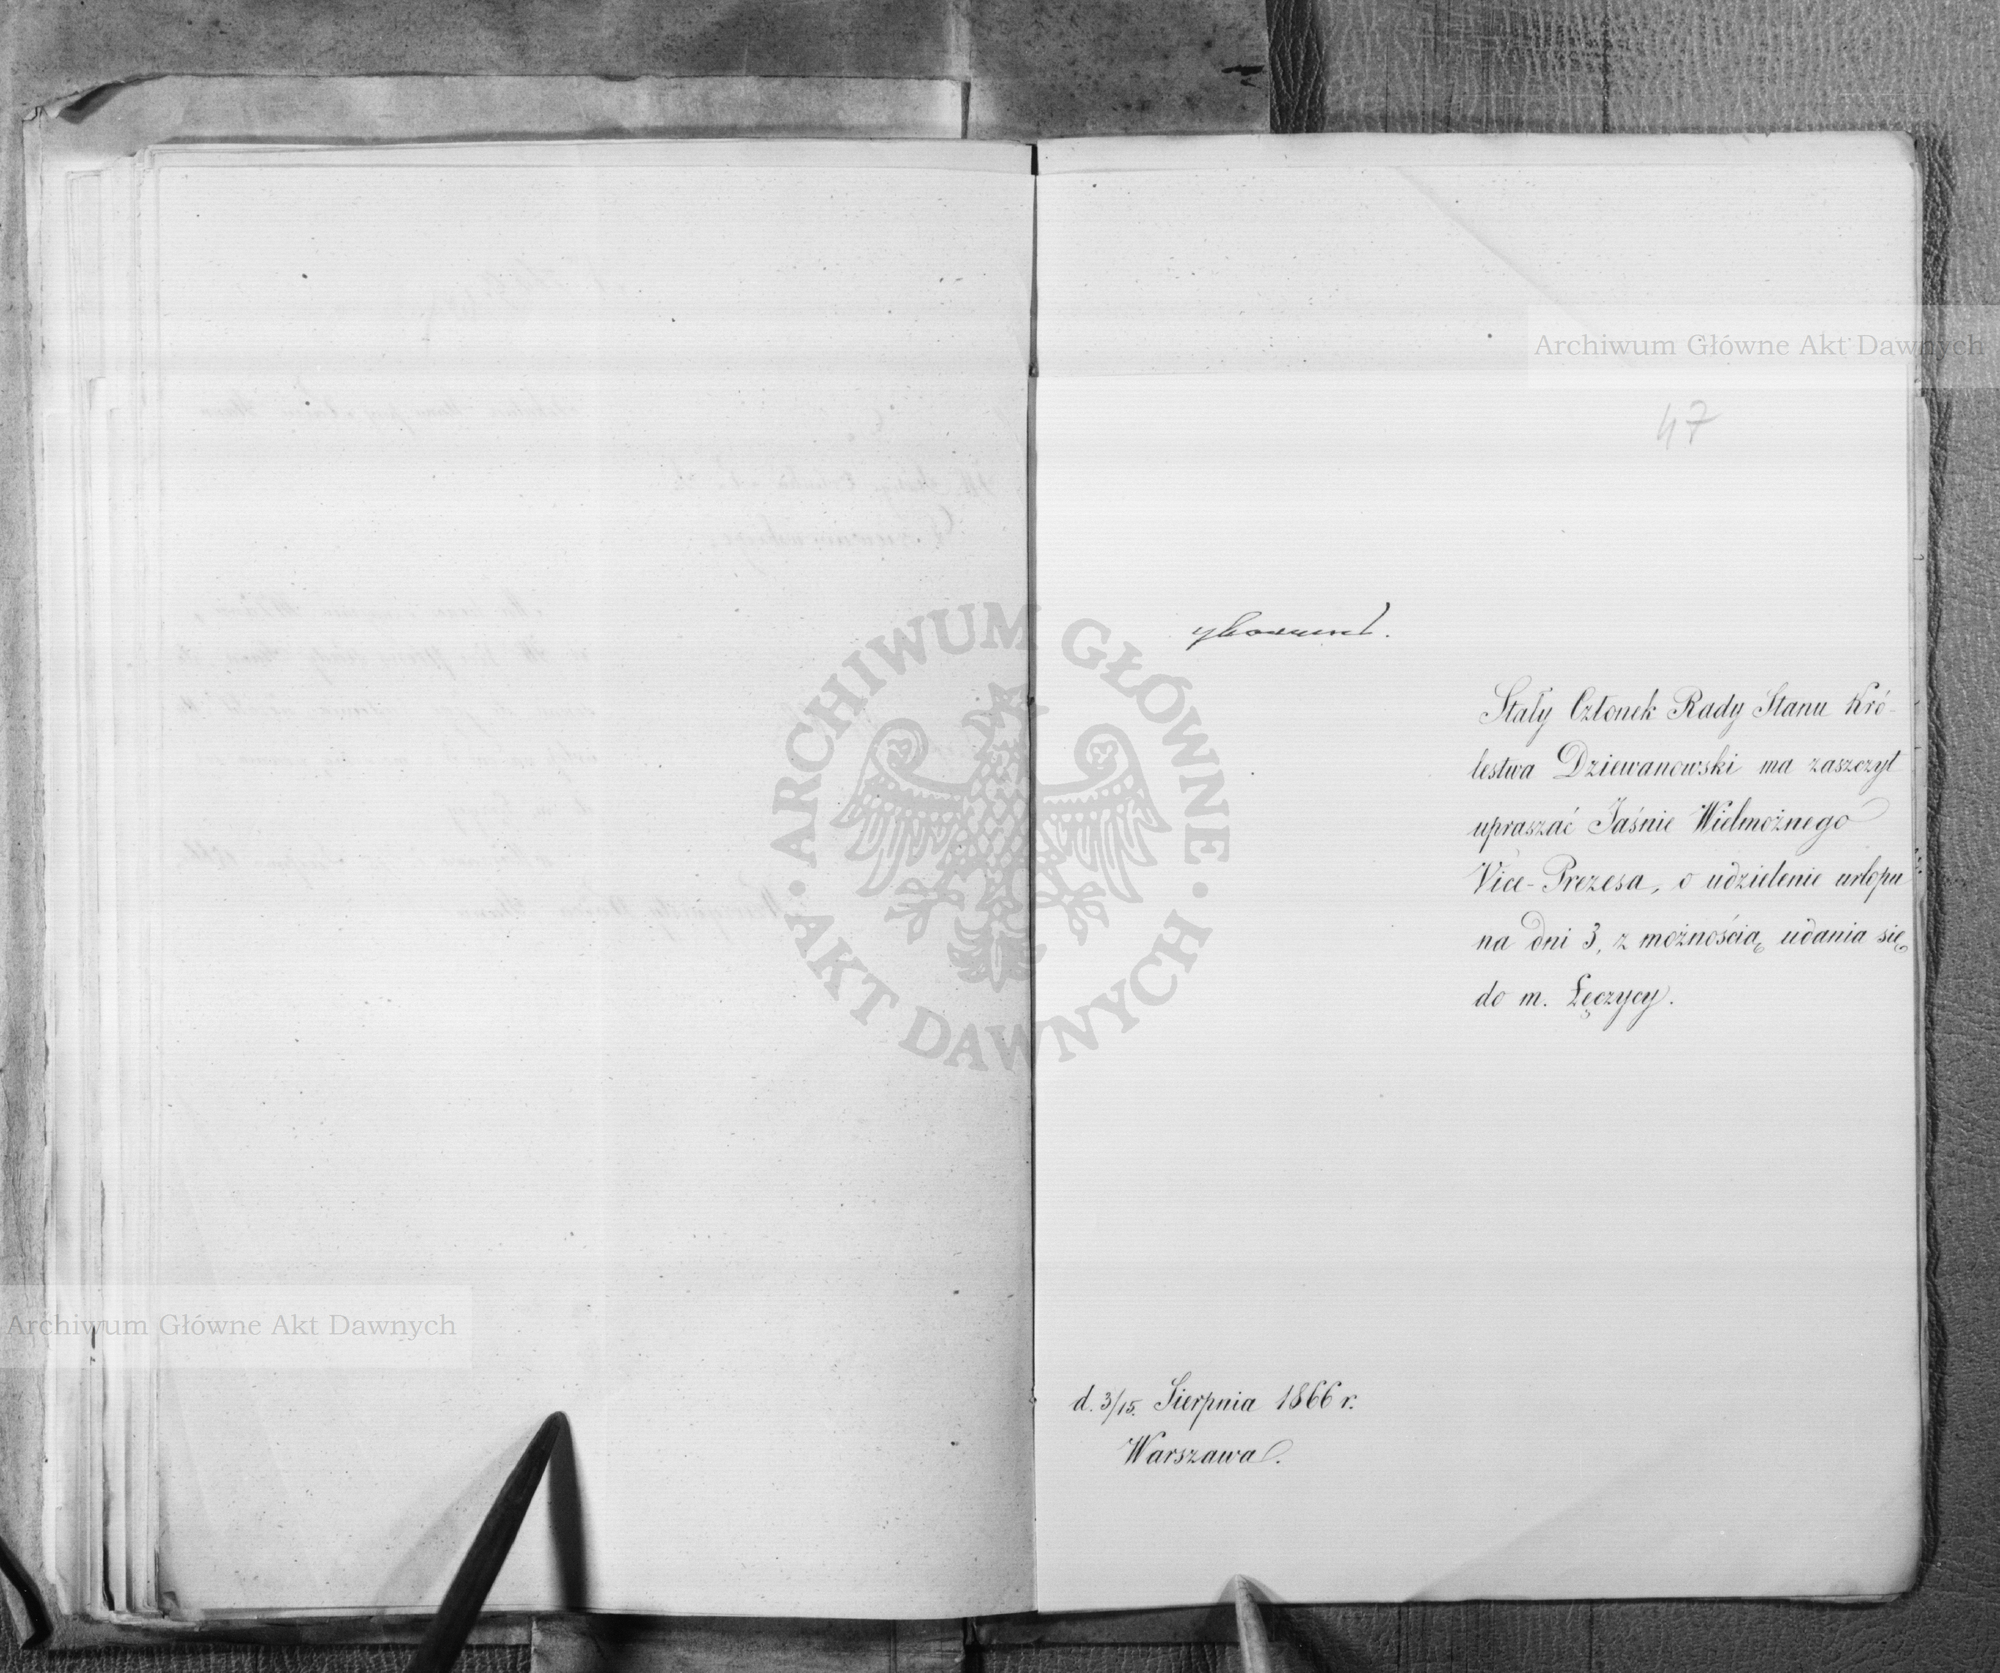 Archiwum Główne Akt Dawnych
47
Stały Członek Rady Stanu Kró-
lestwa Dziewanowski ma zaszczyt
upraszać Jaśnie Wielmożnego
Vice-Prezesa, o udzielenie urlopu
na dni 3, z możnością udania się
do m. Łęczycy.
ARCHIWUM GŁÓWNE AKT DAWNYCH
Archiwum Główne Akt Dawnych
d. 3/15. Sierpnia 1866 r.
Warszawa.